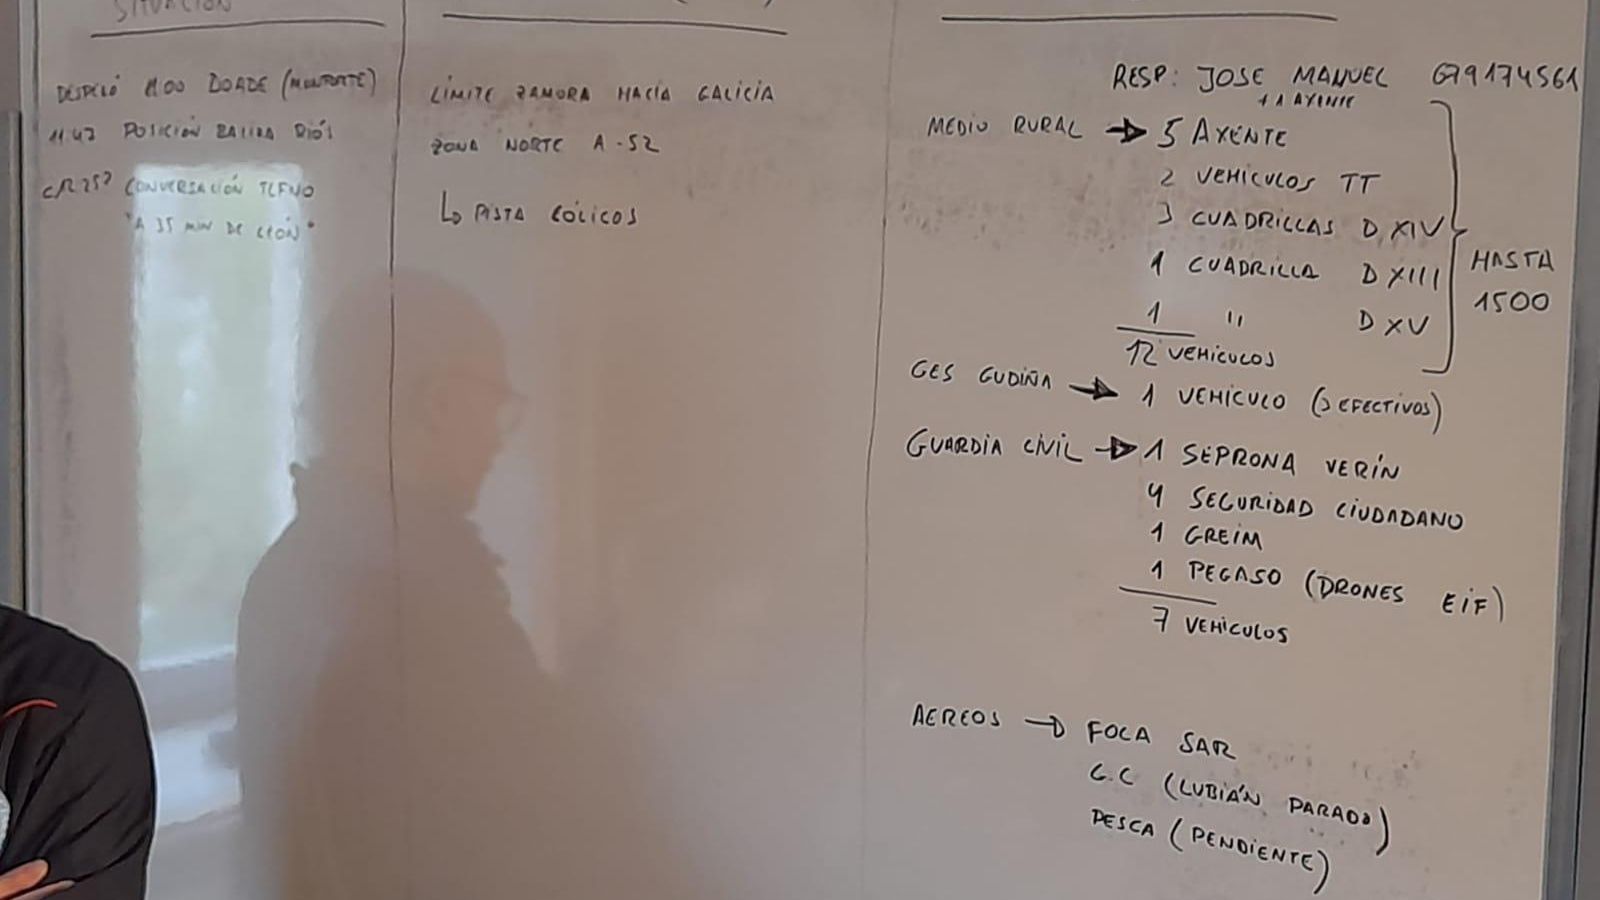 SITUACIÓN
DESPEGÓ 1100 DOADE (MONFORTE)
11:47 POSICIÓN BALIZA RIÓS
CONVERSACIÓN TLFNO
"A 35 MIN DE LEÓN"
LÍMITE ZAMORA HACIA GALICIA
ZONA NORTE A-52
↳ PISTA EÓLICOS
RESP: JOSE MANUEL 679174561
+ 1 AXENTE
MEDIO RURAL → 5 AXENTE
2 VEHÍCULOS TT
3 CUADRILLAS D XIV
1 CUADRILLA D XIII
1 " D XV
12 VEHÍCULOS
HASTA
1500
GES GUDIÑA → 1 VEHÍCULO (2 EFECTIVOS)
GUARDIA CIVIL → 1 SEPRONA VERÍN
4 SEGURIDAD CIUDADANO
1 GREIM
1 PEGASO (DRONES EIF)
7 VEHICULOS
AEREOS → FOCA SAR
G.C (LUBIÁN PARADO)
PESCA (PENDIENTE)